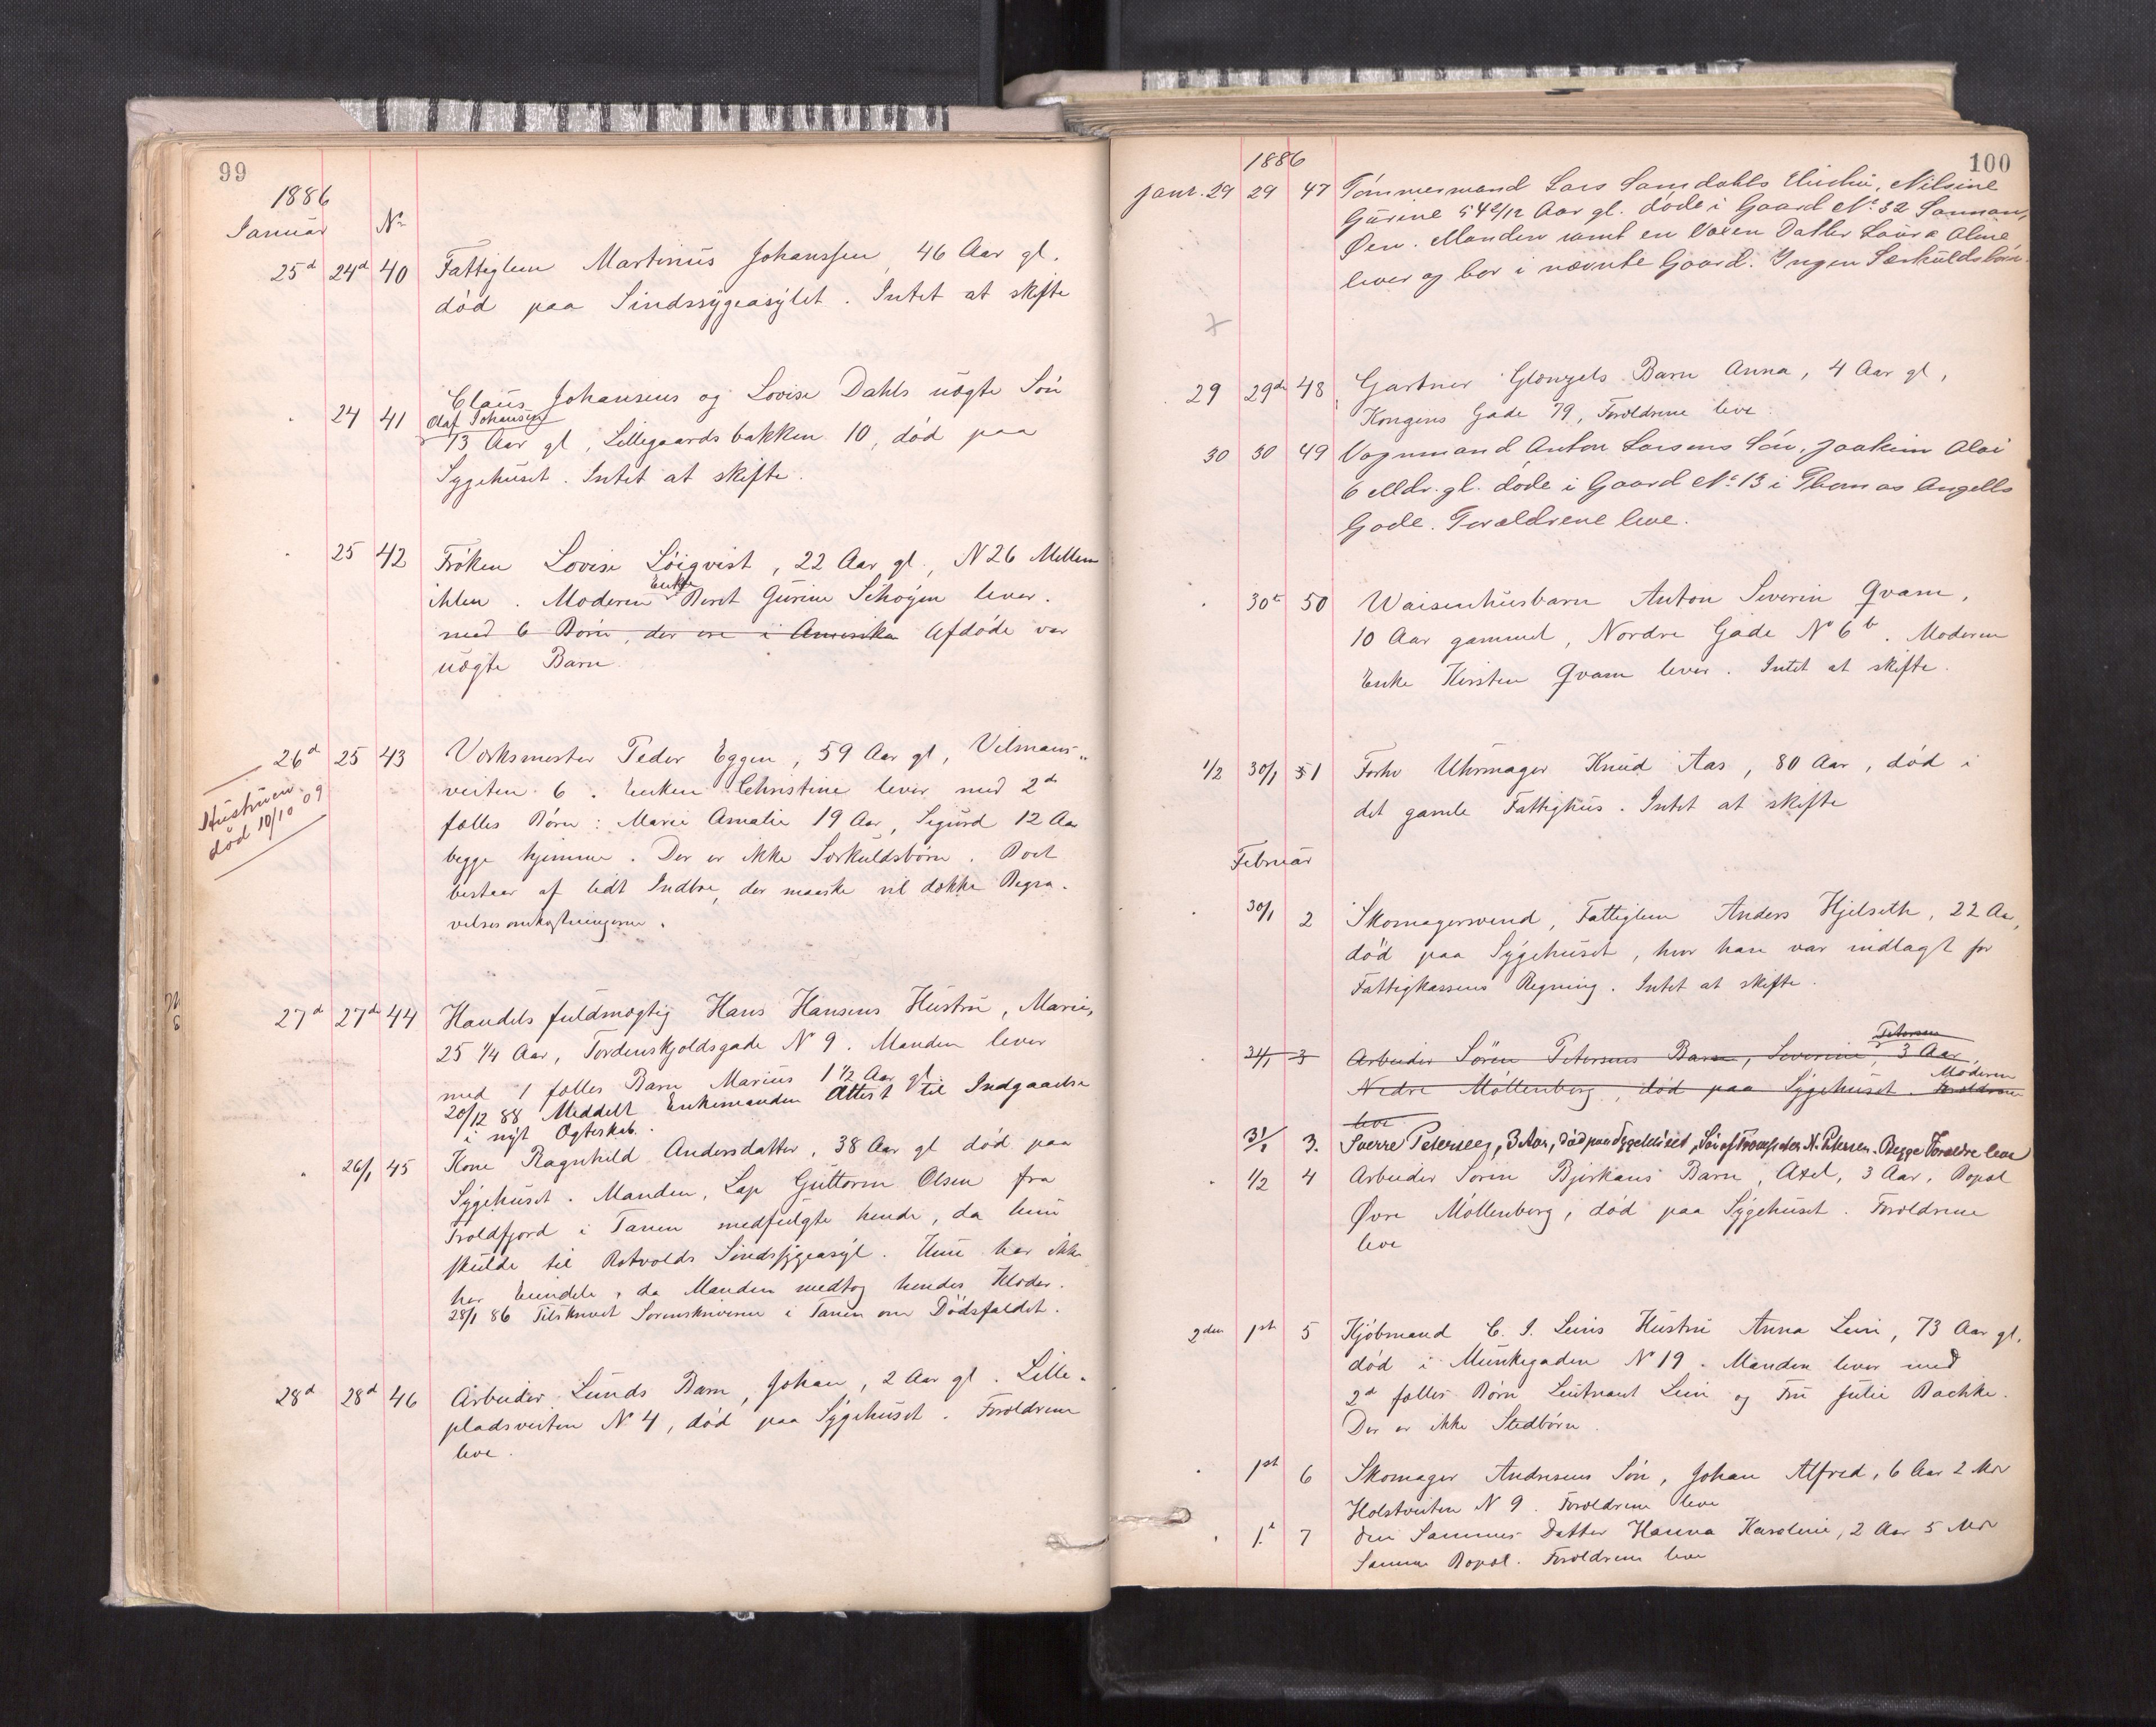 99
1886
Januar No
25d 24d 40 Fattiglem Martinus Johanssen, 46 Aar gl.
død paa Sindssygeasylet. Intet at skifte
Claus Johansens og Lovise Dahls uægte Søn
24 41 Olaf Johansen
13 Aar gl, Lillegaardsbakken 10, død paa
Sygehuset. Intet at skifte.
25 42 Frøken Lovise Löiqvist, 22 Aar gl., N 26 Mellem
ihlen. Moderen Enke Beret Gurine Schøyen lever.
med 6 Børn, der ere i Amerika Afdøde var
uægte Barn
26d 25 43 Værksmester Peder Eggen, 59 Aar gl, Vilmans-
veiten 6. Enken Christine lever med 2de
fælles Børn: Marie Amalie 19 Aar, Sigurd 12 Aar
Hustruen
død 10/10 09
begge hjemme. Der er ikke Særkuldsbørn. Boet
bestaar af lidt Indbo, der maaske vil dække Begra-
velsesomkostningerne.
27d 27de 44 Handelsfuldmægtig Hans Hansens Hustru, Marie,
25 1/4 Aar, Tordenskjoldsgade N 9. Manden lever
med 1 fælles Barn Marius 1 1/2 Aar gl
20/12 88 Meddelt Enkemanden Attest til Indgaaelse
i nyt Ægteskab.
26/1 45 Kone Ragnhild Andersdatter, 38 Aar gl død paa
Sygehuset. Manden, Lap Guttorm Olsen fra
Troldfjord i Tanen medfulgte hende, da hun
skulde til Rotvolds Sindssygeasyl. Hun har ikke
her Eiendele, da Manden medtog hendes Klæder.
28/1 86 Tilskrevet Sorenskriveren i Tanen om Dødsfaldet.
28d 28d 46 Arbeider Lunds Barn, Johan, 2 Aar gl. Lille-
pladsveiten N 4, død paa Sygehuset. Forældrene
leve.
100
1886
Janr. 29 29 47 Tømmermand Lars Samdahls Hustru, Nilsine
Gurine 54 2/12 Aar gl. døde i Gaard No 32 Sannan,
Øen. Manden samt en voxen Datter Laura Oline
lever og bor i nævnte Gaard. Ingen Særkuldsbørn.
29 29de 48 Gartner Glængels Barn Anna, 4 Aar gl,
Kongens Gade 79, Forældrene leve
30 30 49 Vognmand Anton Larsens Søn, Joakim Aloi
6 Mdr. gl. døde i Gaard No 13 i Thomas Angells
Gade. Forældrene leve.
30te 50 Waisenhusbarn Anton Severin Qvam,
10 Aar gammel, Nordre Gade No 6b. Moderen
Enke Kirsten Qvam lever. Intet at skifte.
1/2 30/1 51 Forhv Uhrmager Knud Aas, 80 Aar, død i
det gamle Fattighus. Intet at skifte
Februar
30/1 2 Skomagersvend, Fattiglem Anders Hjelseth, 22 Aar,
død paa Sygehuset, hvor han var indlagt for
Fattigkassens Regning. Intet at skifte.
Petersen
31/1 3 Arbeider Søren Petersens Barn, Severine, 3 Aar,
Moderen
Nedre Møllenberg, død paa Sygehuset. Forældrene
leve
31/1 3. Sverre Petersen, 3 Aar, død paa Sygehuset, Søn af N. Petersen. Begge Forældre leve
1/2 4 Arbeider Soren Bjerkans Barn, Axel, 3 Aar, Bopæl
Øvre Møllenberg, død paa Sygehuset. Forældrene
leve
2den 1st 5 Kjøbmand C. I. Leins Hustru Anna Lein, 73 Aar gl,
død i Munkegaden N 19. Manden lever med
2d fælles Børn Leutnant Lein og Fru Julie Bachke.
Der er ikke Stedbørn.
1st 6 Skomager Andresens Søn, Johan Alfred, 6 Aar 2 Mdr
Holstveiten N 9. Forældrene leve
1t 7 den Sammes Datter Hanna Karoline, 2 Aar 5 Mdr
Samme Bopæl. Forældrene leve